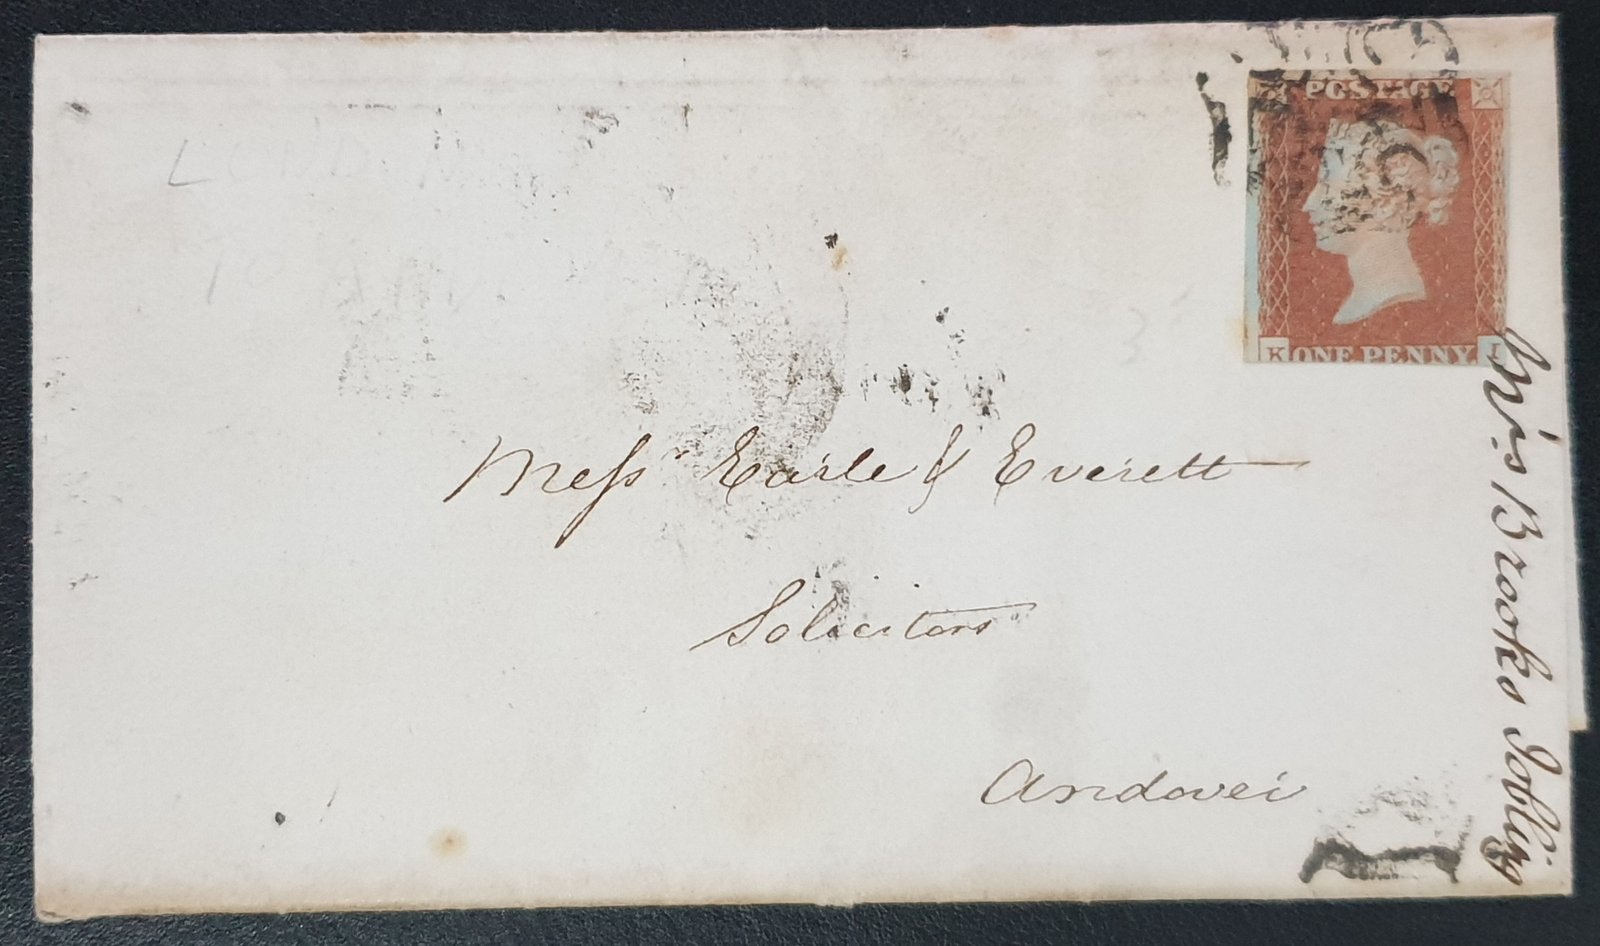 POSTAGE
ONE PENNY
K
LONDON
Messrs Earle & Everett
Solicitors
Andover
Brooks Jobling